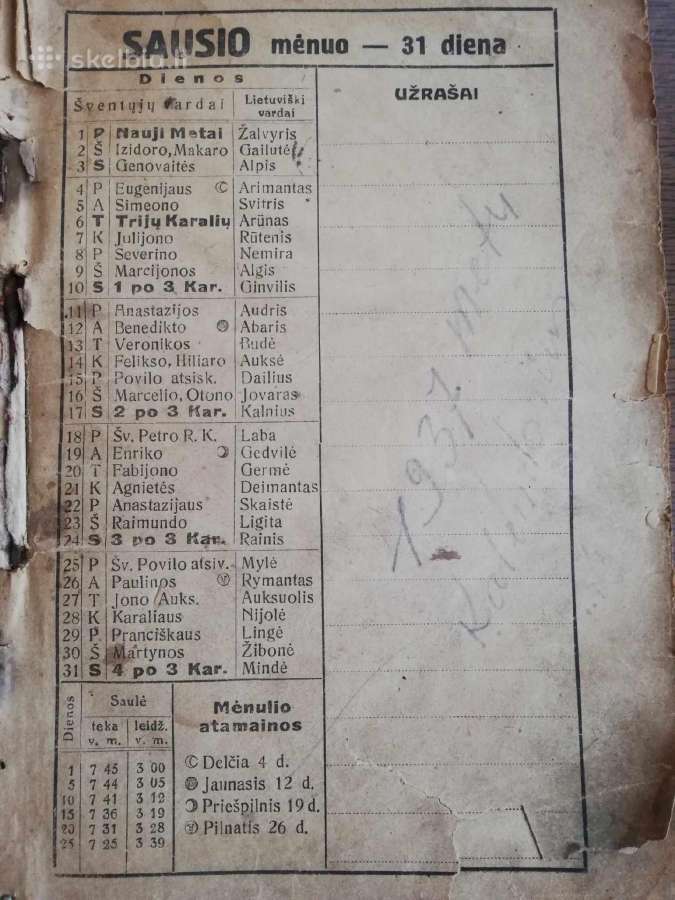 skelbiu.lt
SAUSIO mėnuo — 31 diena
Dienos
Šventųjų vardai Lietuviški vardai
UŽRAŠAI
1 P Nauji Metai Žalvyris
2 Š Izidoro, Makaro Gailutė
3 S Genovaitės Alpis
4 P Eugenijaus ☾ Arimantas
5 A Simeono Svitris
6 T Trijų Karalių Arūnas
7 K Julijono Rūtenis
8 P Severino Nemira
9 Š Marcijonos Algis
10 S 1 po 3 Kar. Ginvilis
11 P Anastazijos Audris
12 A Benedikto Abaris
13 T Veronikos Budė
14 K Felikso, Hiliaro Auksė
15 P Povilo atsisk. Dailius
16 Š Marcelio, Otono Jovaras
17 S 2 po 3 Kar. Kalnius
18 P Šv. Petro R. K. Laba
19 A Enriko Gedvilė
20 T Fabijono Germė
21 K Agnietės Deimantas
22 P Anastazijaus Skaistė
23 Š Raimundo Ligita
24 S 3 po 3 Kar. Rainis
25 P Šv. Povilo atsiv. Mylė
26 A Paulinos Rymantas
27 T Jono Auks. Auksuolis
28 K Karaliaus Nijolė
29 P Pranciškaus Lingė
30 Š Martynos Žibonė
31 S 4 po 3 Kar. Mindė
1937 metų
Dienos Saulė
teka leidž.
v. m. v. m.
1 7 45 3 00
5 7 44 3 05
10 7 41 3 12
15 7 36 3 19
20 7 31 3 28
25 7 25 3 39
Mėnulio
atamainos
Delčia 4 d.
Jaunasis 12 d.
Priešpilnis 19 d.
Pilnatis 26 d.